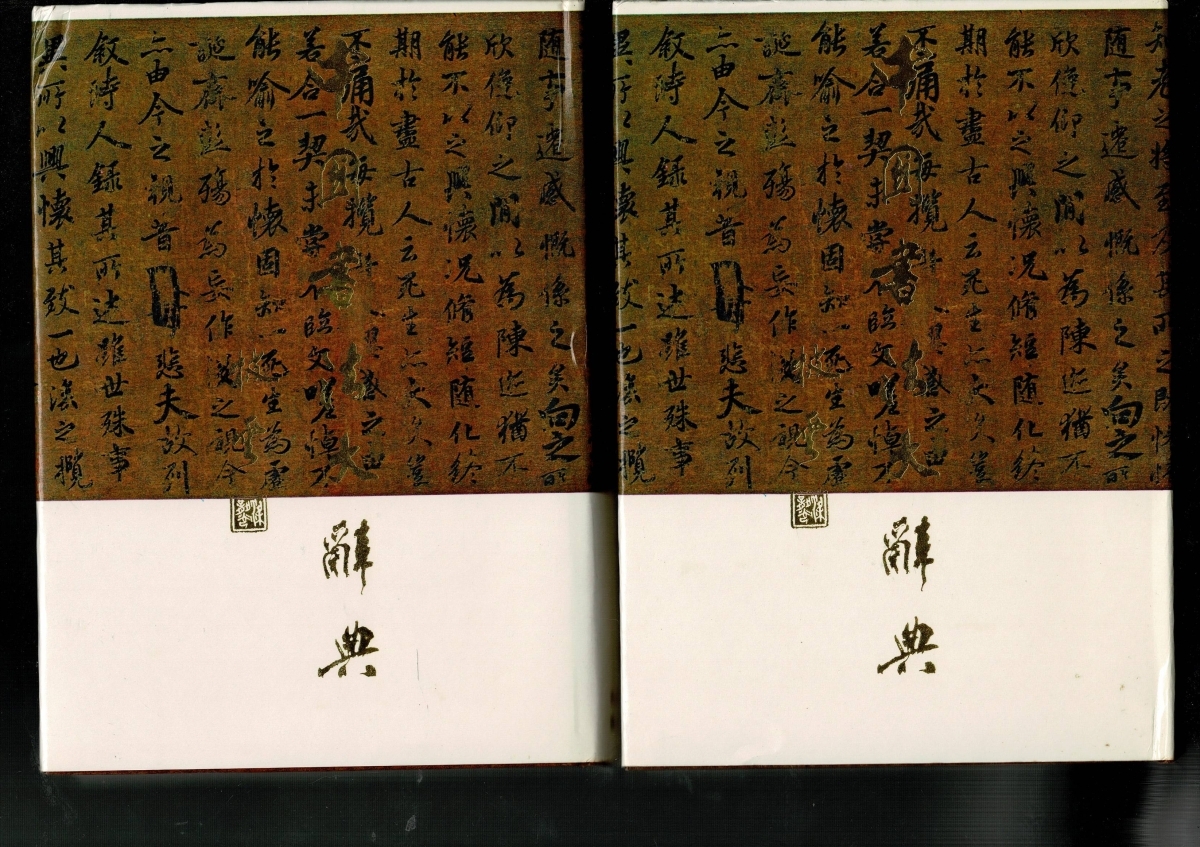 随事遷感慨係之矣向之所
欣俛仰之間以為陳迹猶不
能不以之興懷況脩短随化終
期於盡古人云死生亦大矣豈
不痛哉每攬昔人興感之由
若合一契未嘗不臨文嗟悼不
能喻之於懷固知一死生為虛
誕齊彭殤為妄作後之視今
亦由今之視昔悲夫故列
叙時人錄其所述雖世殊事
異所以興懷其致一也後之攬
中國書法大辭典
知老之将至及其所之既惓
随事遷感慨係之矣向之所
欣俛仰之間以為陳迹猶不
能不以之興懷況脩短随化終
期於盡古人云死生亦大矣豈
不痛哉每攬昔人興感之由
若合一契未嘗不臨文嗟悼不
能喻之於懷固知一死生為虛
誕齊彭殤為妄作後之視今
亦由今之視昔悲夫故列
叙時人錄其所述雖世殊事
異所以興懷其致一也後之攬
中國書法大辭典